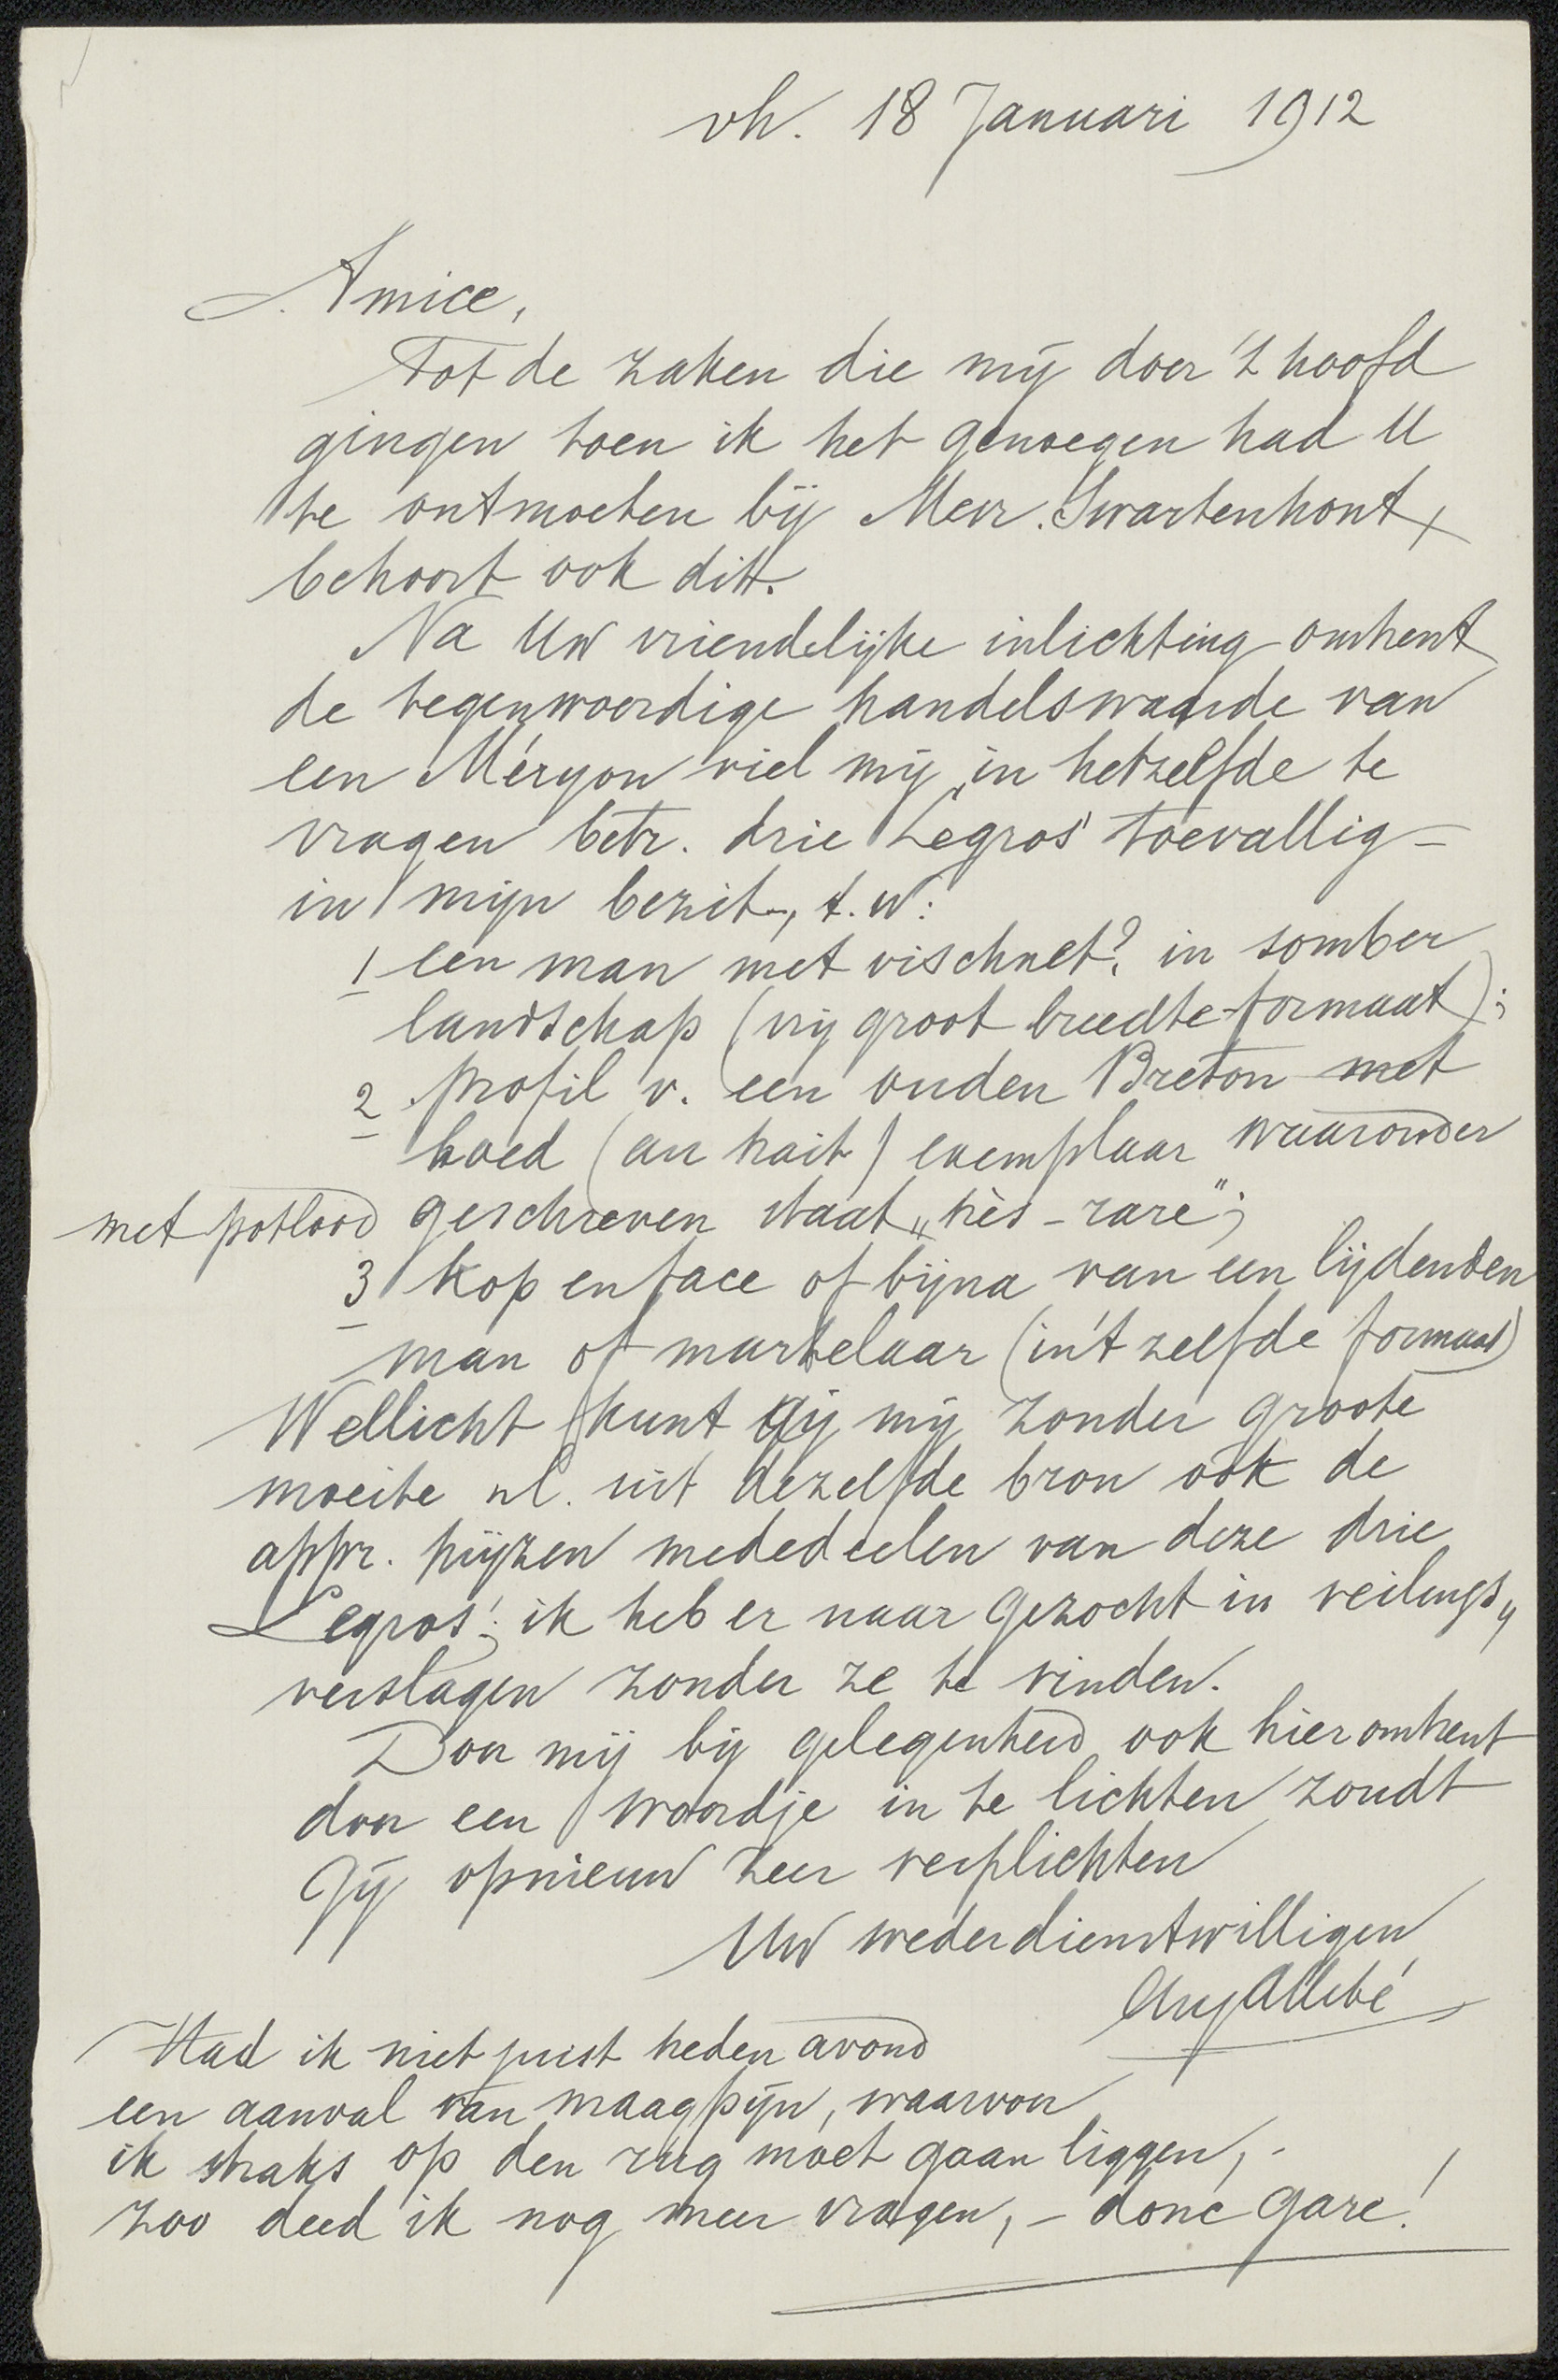 vh. 18 Januari 1912
Amice,
Tot de zaken die mij door 't hoofd
gingen toen ik het genoegen had U
te ontmoeten bij Mevr. Swartenhont,
behoort ook dit.
Na Uw vriendelijke inlichting omtrent
de tegenwoordige handelswaarde van
een Méryon viel mij in hetzelfde te
vragen betr. drie Legros' toevallig
in mijn bezit, t.w:
1 een man met vischnet? in somber
landschap (vrij groot breedte-formaat);
2 profil v. een ouden Breton met
hoed (au trait) exemplaar waaronder
met potlood geschreven staat „très-rare";
3 kop en face of bijna van een lijdenden
man of martelaar (in't zelfde formaat)
Wellicht kunt Gij mij zonder groote
moeite nl. uit dezelfde bron ook de
appr. prijzen mededeelen van deze drie
Legros'; ik heb er naar gezocht in veilings„
verslagen zonder ze te vinden.
Door mij bij gelegenheid ook hieromtrent
door een woordje in te lichten zoudt
Gij opnieuw zeer verplichten
Uw wederdienstwilligen
Aug Allebé
Had ik niet juist heden avond
een aanval van maagpijn, waarvoor
ik straks op den rug moet gaan liggen, -
zoo deed ik nog meer vragen, - donc gare!